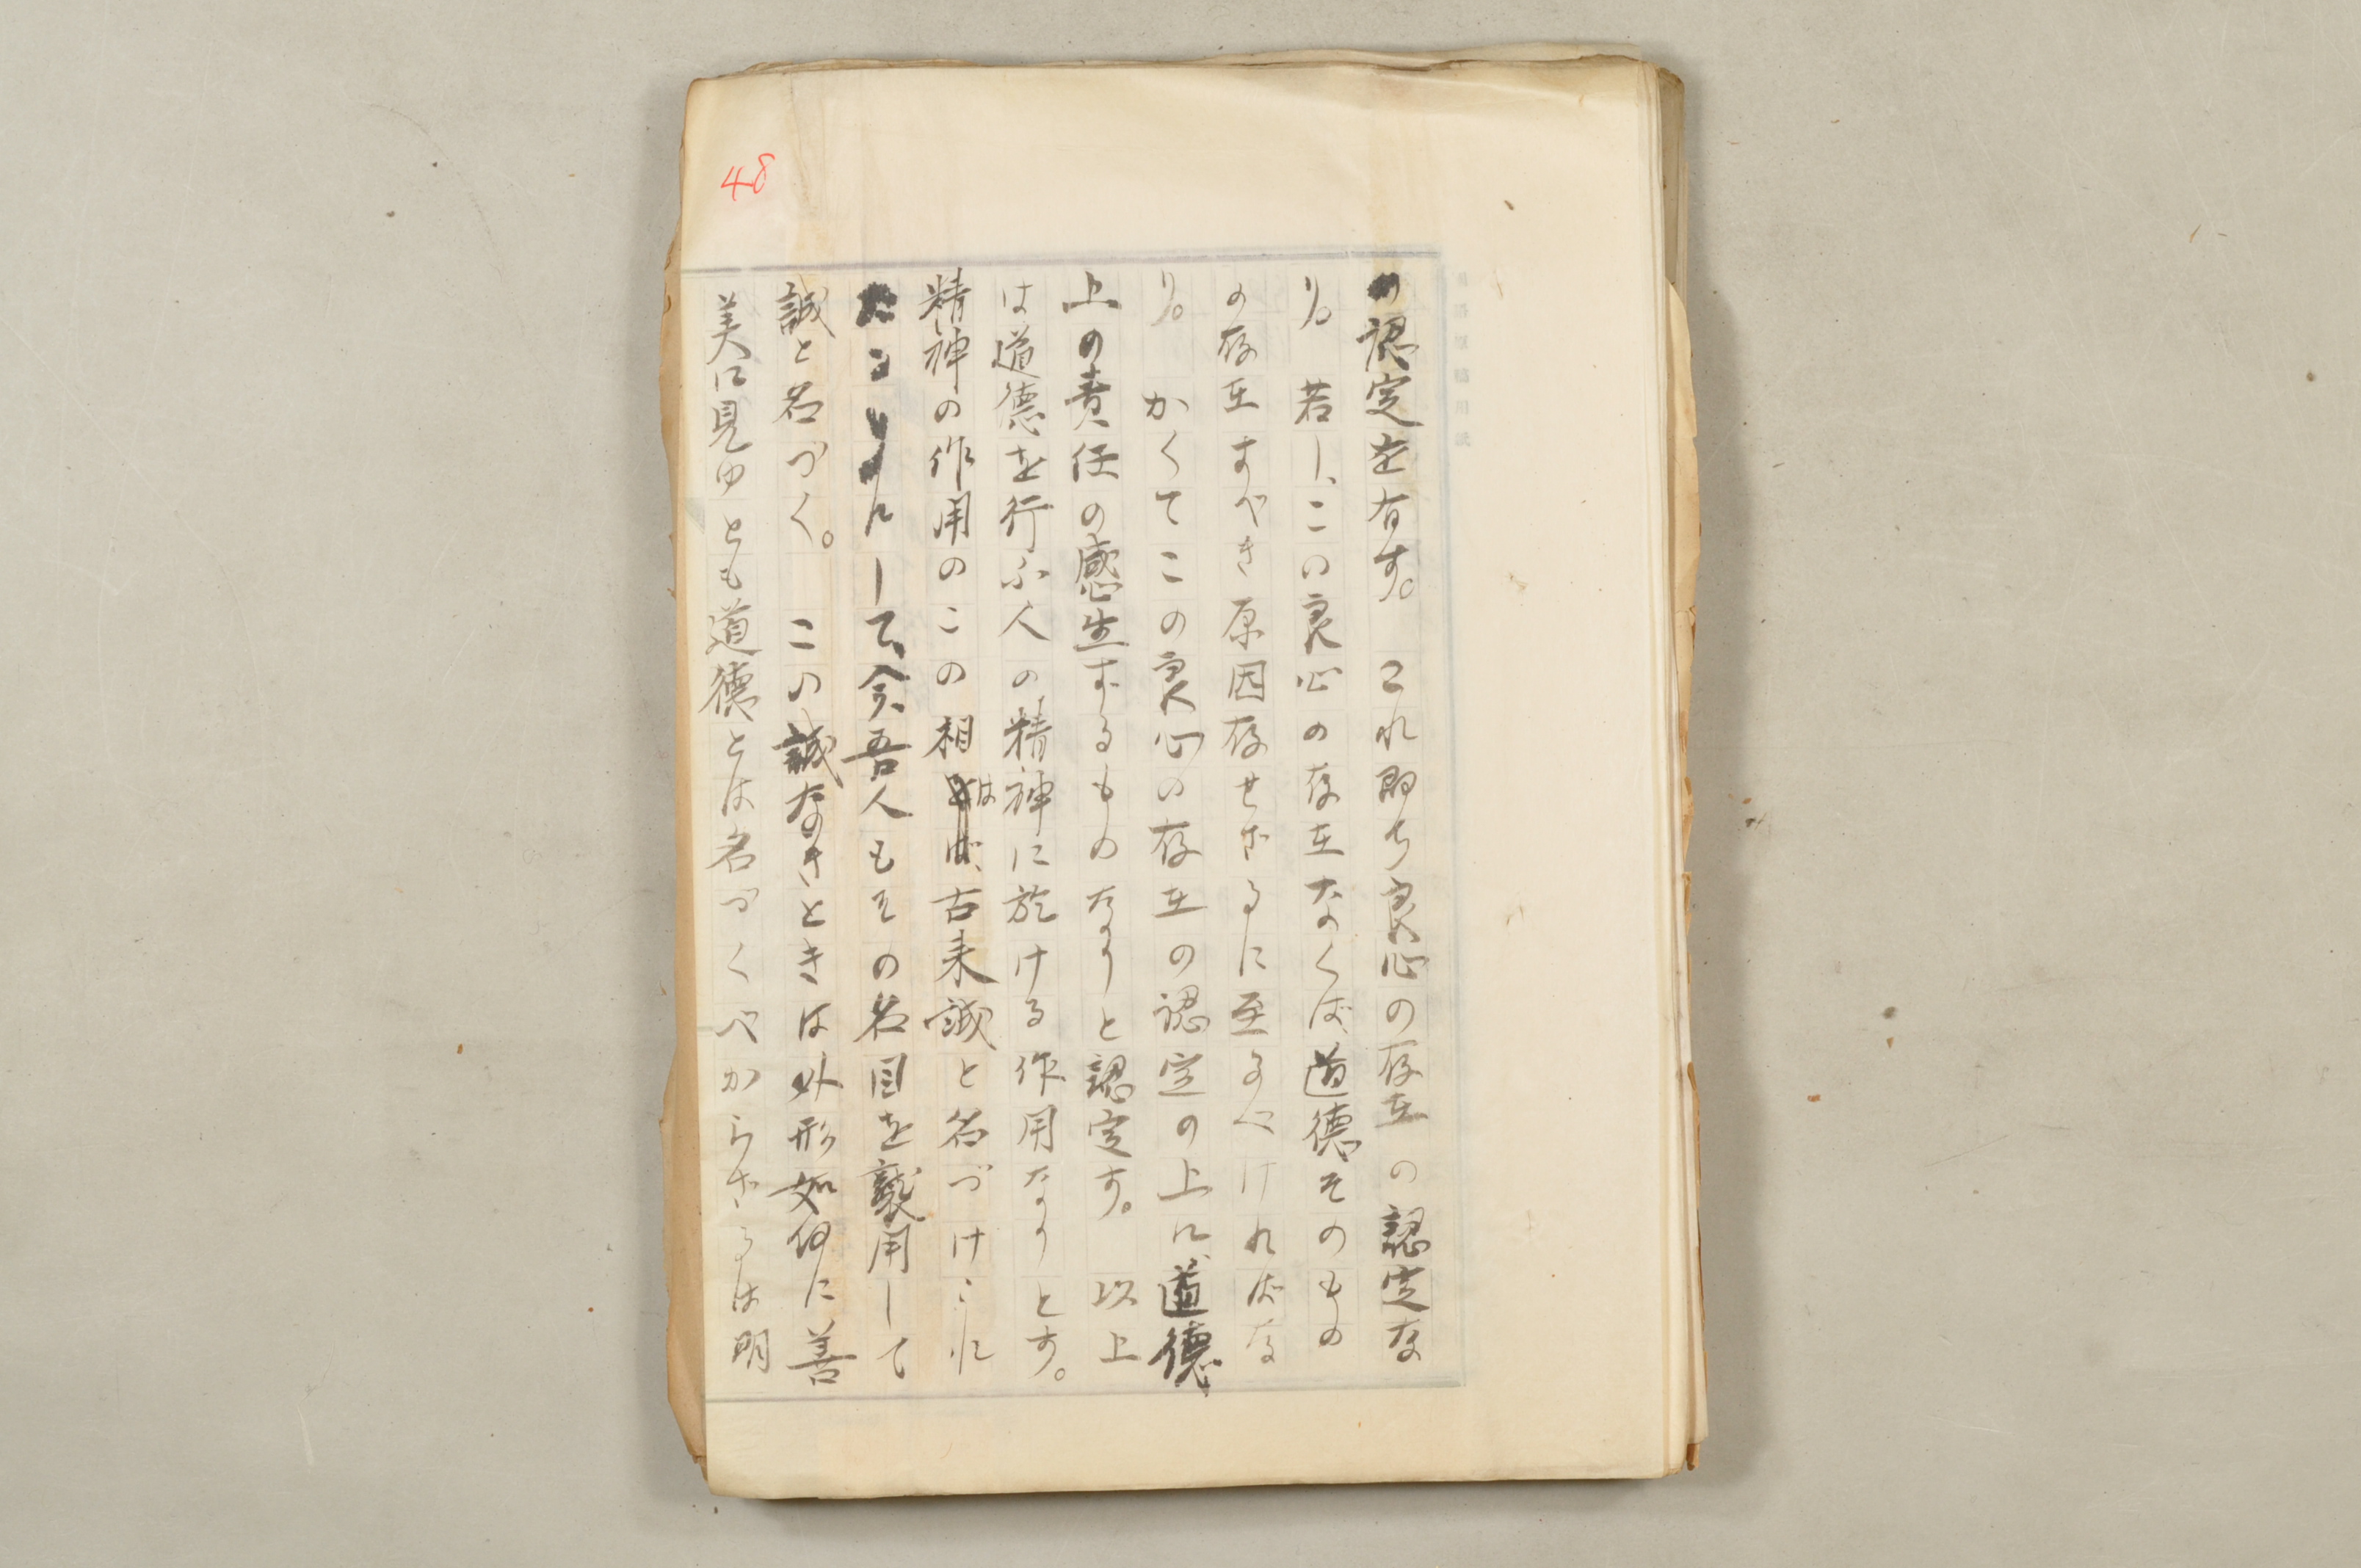 48
の認定を有す。これ即ち良心の存在の認定な
り。若し、この良心の存在なくば、道徳そのもの
の存在すべき原因存せざるに至るべければな
り。かくてこの良心の存在の認定の上に、道徳
上の責任の感生ずるものなりと認定す。以上
は道徳を行ふ人の精神に於ける作用なりとす。
精神の作用のこの相は、古来誠と名づけられ
たることにして、今、吾人もその名目を襲用して
誠と名づく。この誠なきときは外形如何に善
美に見ゆとも道徳とは名づくべからざるは明